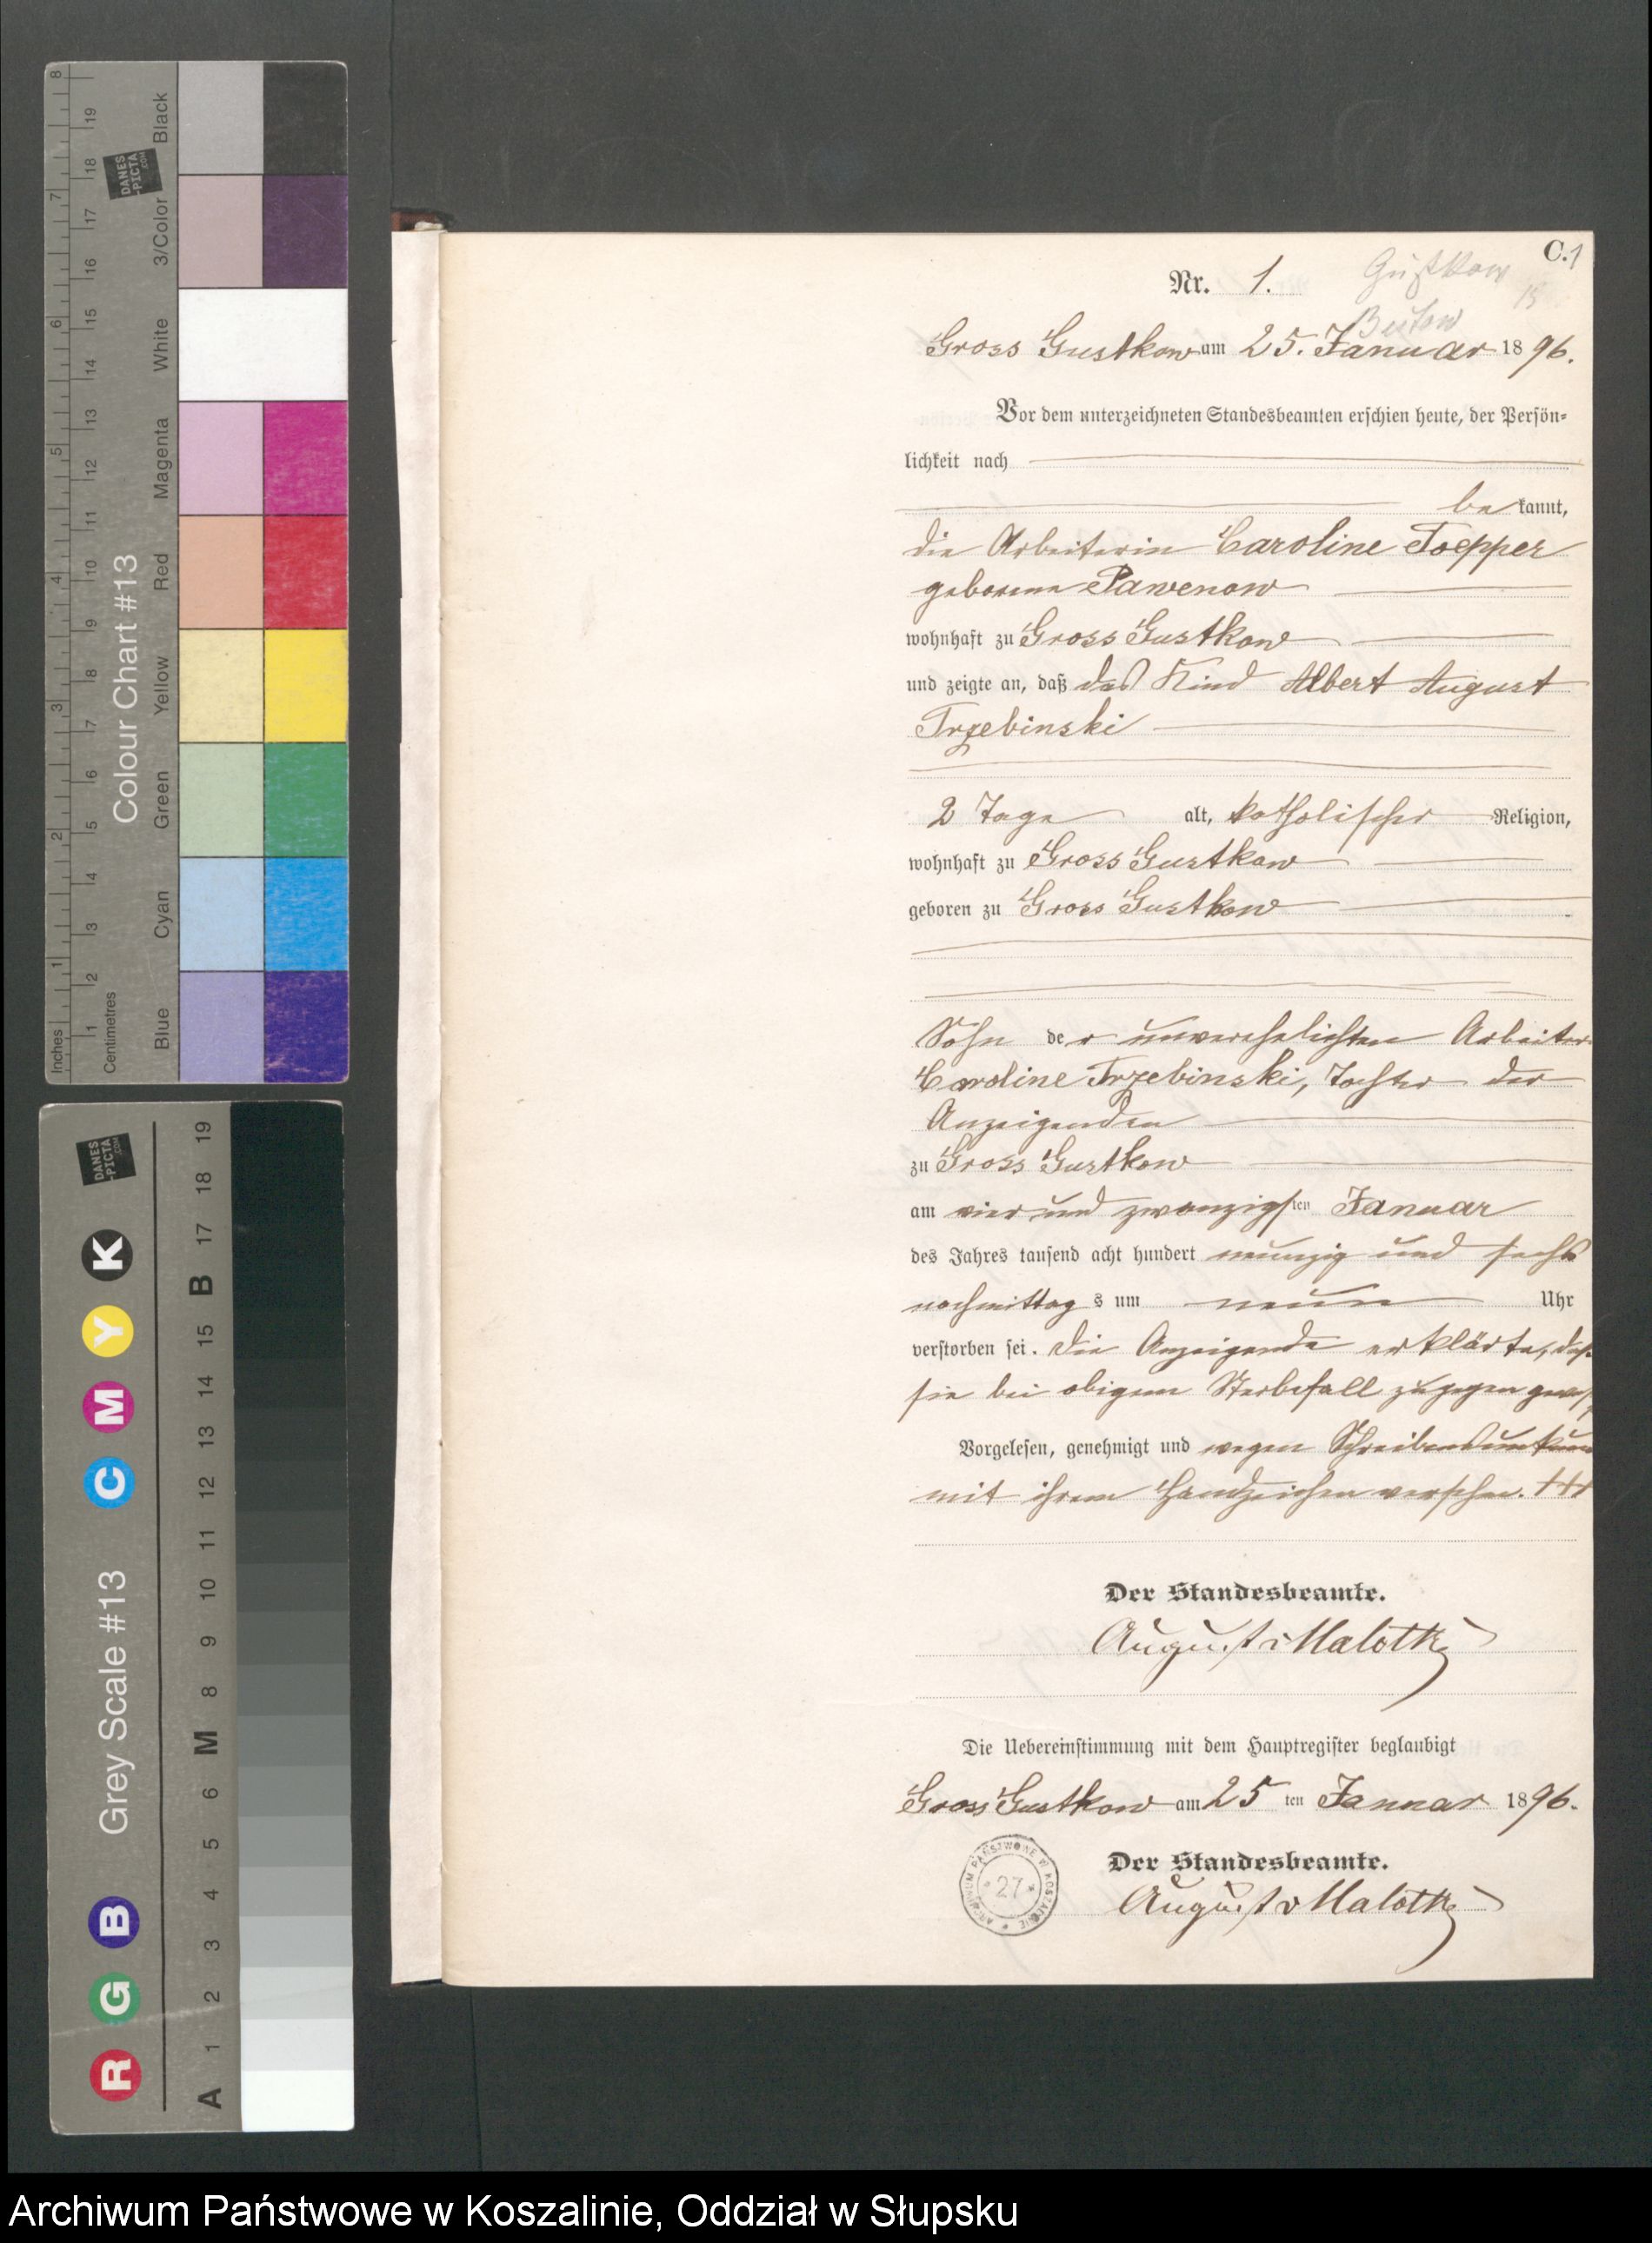 C.1
Gustkow
Nr. 1.
Butow
Gross Gustkow am 25. Januar 1896.
Vor dem unterzeichneten Standesbeamten erschien heute, der Persön-
lichkeit nach
bekannt,
die Arbeiterin Caroline Toepper
geborene Pawenow
wohnhaft zu Gross Gustkow
und zeigte an, daß das Kind Albert August
Trzebinski
2 Tage alt, katholischer Religion,
wohnhaft zu Gross Gustkow
geboren zu Gross Gustkow
Sohn der unverehelichten Arbeiter
Caroline Trzebinski, Tochter der
Anzeigenden
zu Gross Gustkow
am vier und zwanzigsten Januar
des Jahres tausend acht hundert neunzig und sechs
nachmittags um neun Uhr
verstorben sei. Die Anzeigende erklärte, daß
sie bei obigem Sterbefall zugegen gewes
Vorgelesen, genehmigt und wegen Schreibensunkun
mit ihrem Handzeichen versehen. +++
Der Standesbeamte.
August v Malottki
Die Uebereinstimmung mit dem Hauptregister beglaubigt
Gross Gustkow am 25 ten Januar 1896.
Der Standesbeamte.
August v Malottki
ARCHIWUM PAŃSTWOWE W KOSZALINIE
27
Colour Chart #13
Inches
Centimetres
1 2 3 4 5 6 7 8
1 2 3 4 5 6 7 8 9 10 11 12 13 14 15 16 17 18 19
Blue Cyan Green Yellow Red Magenta White 3/Color Black
DANES
-PICTA
.COM
Grey Scale #13
R G B C M Y K
A 1 2 3 4 5 6 M 8 9 10 11 12 13 14 15 B 17 18 19
DANES
-PICTA
.COM
Archiwum Państwowe w Koszalinie, Oddział w Słupsku